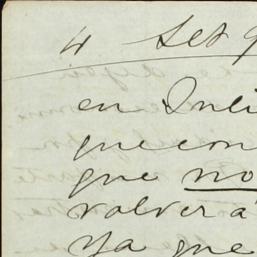 4 Set 9
en Juli
que con
que no
volverá
Ya que